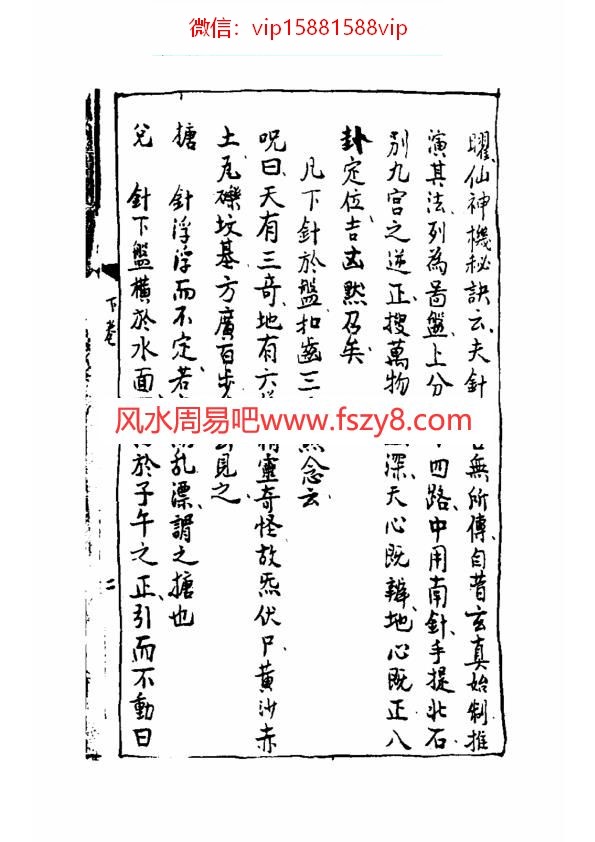 微信：vip15881588vip
曜仙神機秘訣云夫針
無所傳自昔玄真始制推
演其法列為啚盤上分
四路中用南針手提北石
別九宮之逆正搜萬物
深天心既辨地心既正八
卦定位吉凶黙召矣
凡下針於盤扣齒三
念云
呪曰天有三奇地有六
精靈奇怪故炁伏尸黃沙赤
土瓦礫坟墓方廣百步
見之
搪 針浮浮而不定若
乱漂謂之搪也
兌 針下盤橫於水面
於子午之正引而不動曰
下卷
二
风水周易吧www.fszy8.com